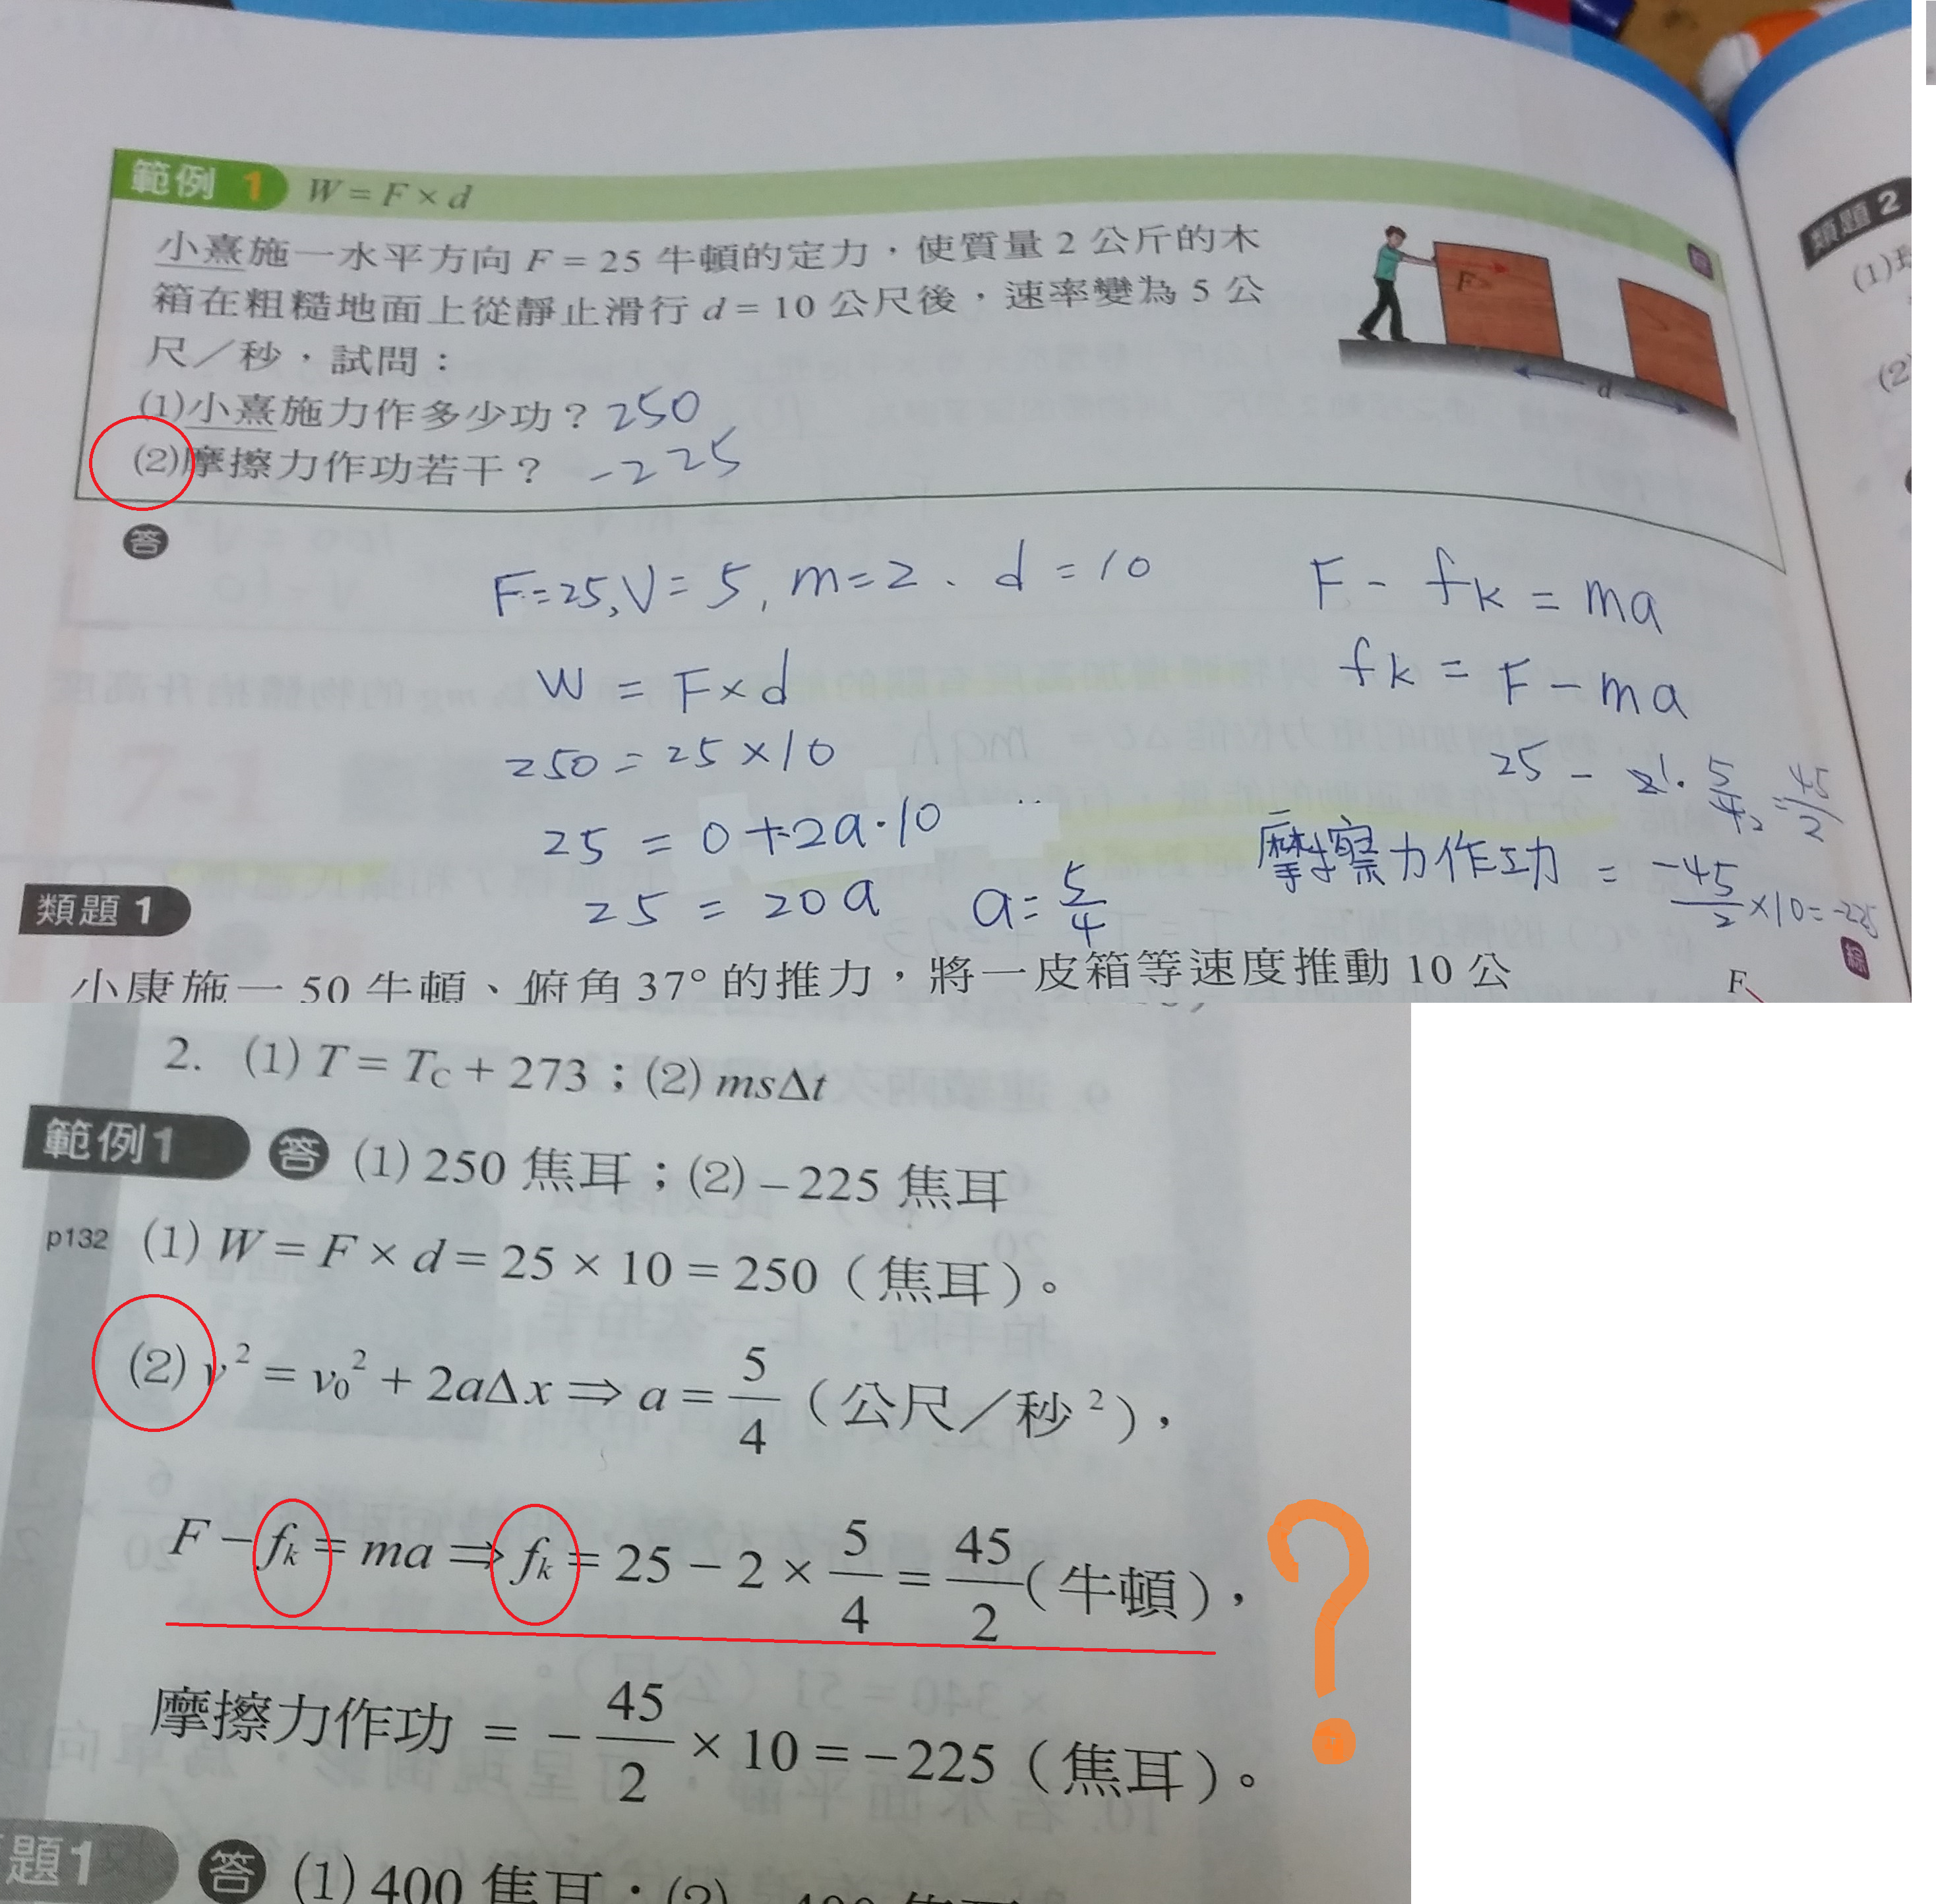 範例 1 W = F × d
類題 2
小熹施一水平方向 F = 25 牛頓的定力，使質量 2 公斤的木
箱在粗糙地面上從靜止滑行 d = 10 公尺後，速率變為 5 公
尺／秒，試問：
(1)小熹施力作多少功？ 250
(2)摩擦力作功若干？ -225
F
d
(1)
(2)
答
F=25, V=5, m=2、d=10
W = F×d
250 = 25×10
25 = 0+2a·10
25 = 20a a=5/4
F - fk = ma
fk = F - ma
25 - 2·5/4 = 45/2
摩擦力作功 = -45/2 ×10=-225
類題 1
綜
小康施一 50 牛頓、俯角 37° 的推力，將一皮箱等速度推動 10 公
F
2. (1) T = TC + 273；(2) msΔt
範例1 答 (1) 250 焦耳；(2) –225 焦耳
p132 (1) W = F × d = 25 × 10 = 250（焦耳）。
(2) v² = v₀² + 2aΔx ⇒ a = 5/4（公尺／秒²），
F – fk = ma ⇒ fk = 25 – 2 × 5/4 = 45/2（牛頓），
?
摩擦力作功 = – 45/2 × 10 = –225（焦耳）。
題1 答 (1) 400 焦耳；(2) –400 焦耳